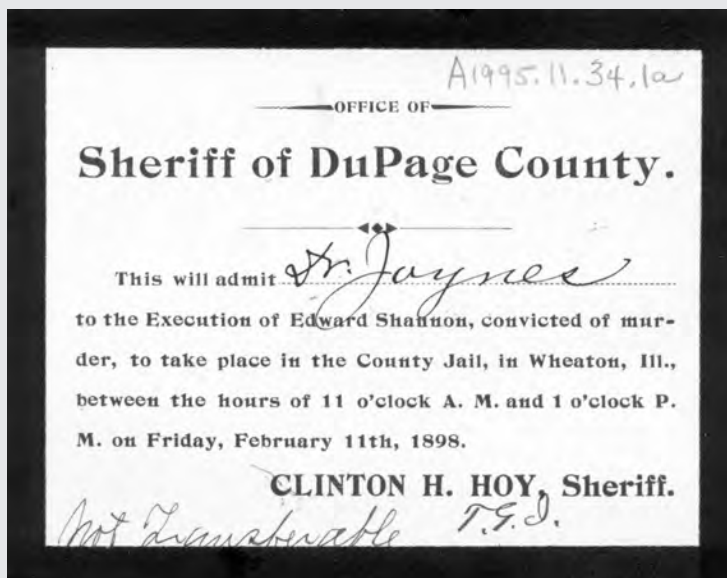 A1995.11.34.1a
OFFICE OF
Sheriff of DuPage County.
This will admit Dr. Joynes
to the Execution of Edward Shannon, convicted of mur-
der, to take place in the County Jail, in Wheaton, Ill.,
between the hours of 11 o'clock A. M. and 1 o'clock P.
M. on Friday, February 11th, 1898.
CLINTON H. HOY, Sheriff.
Not Transferable